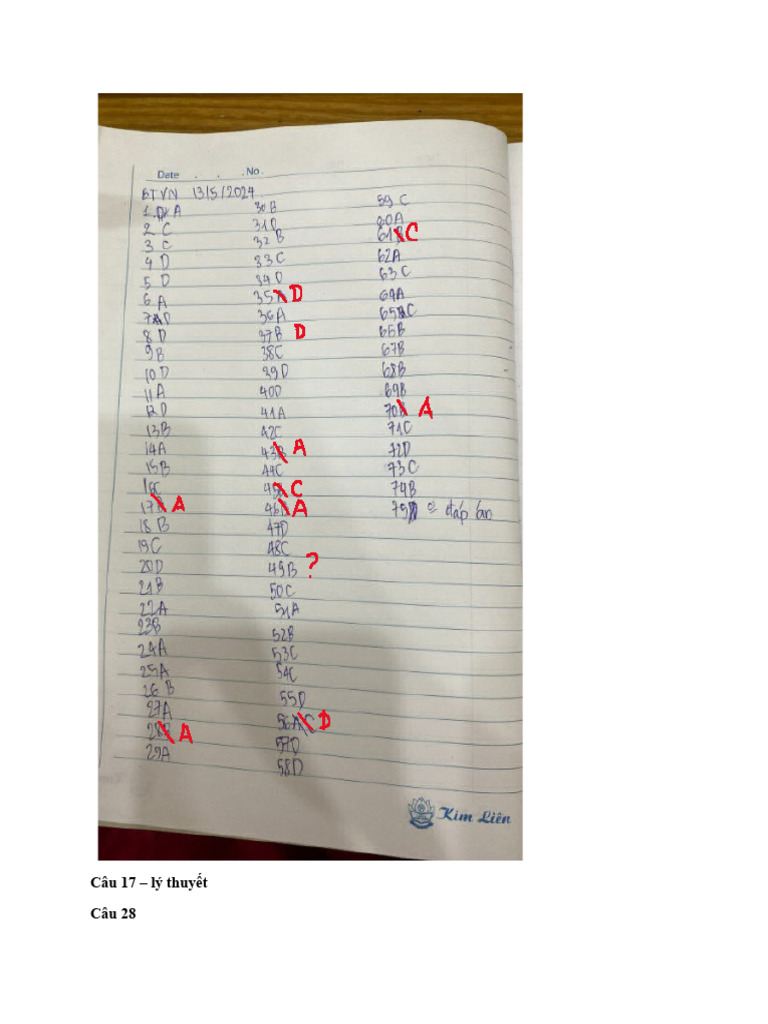 Date . . . No.
BTVN 13/5/2024
1. A
2 C
3 C
4 D
5 D
6 A
7 D
8 D
9 B
10 D
11 A
12 D
13 B
14 A
15 B
16C
17 A
18 B
19 C
20D
21 B
22A
23B
24A
25A
26 B
27A
28 A
29A
30 B
31D
32 B
33 C
34 D
35 D
36A
37B D
38C
39D
40D
41A
42C
43B A
44C
45 C
46 A
47D
48C
49B ?
50C
51A
52B
53C
54C
55D
56AC D
57D
58D
59 C
60A
61B C
62A
63 C
64A
65 C
66B
67B
68B
69B
70B A
71C
72D
73C
74B
75 đáp án
Kim Liên
Câu 17 – lý thuyết
Câu 28